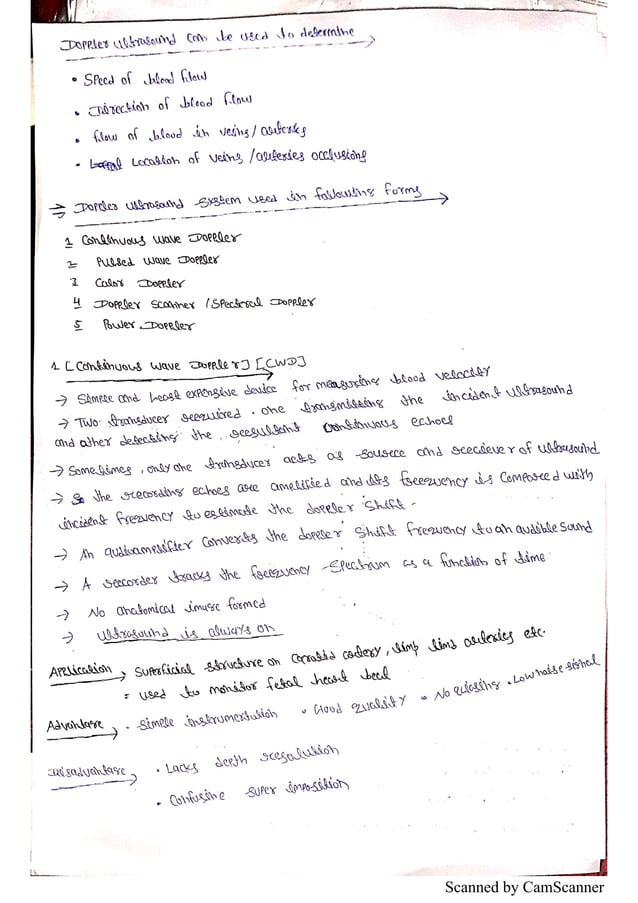 Doppler ultrasound can be used to determine
• Speed of blood flow
• Direction of blood flow
• flow of blood in veins/arteries
• Location of veins/arteries occlusions
⇒ Doppler ultrasound system used in following forms
1 Continuous wave Doppler
2 Pulsed wave Doppler
3 Color Doppler
4 Doppler scanner / Spectral Doppler
5 Power Doppler
1 [Continuous wave Doppler] [CWD]
→ Simple and least expensive device for measuring blood velocity
→ Two transducer required. one transmitting the incident ultrasound
and other detecting the resultant continuous echoes
→ Sometimes, only one transducer acts as source and reciever of ultrasound
→ the recording echoes are amplified and its freequency is compared with
incident frequency to estimate the doppler shift.
→ An audioamplifier converts the doppler shift frequency to an audible sound
→ A recorder tracks the freequency spectrum as a function of time.
→ No anatomical image formed
→ Ultrasound is always on
Application → superficial structure on carotid, limb arteries etc.
= used to monitor fetal heart beat
Advantage → • Simple instrumentation • Good quality • No aliasing • Low noise signal
Disadvantage → • Lacks depth resolution
• Confusing super imposition
Scanned by CamScanner